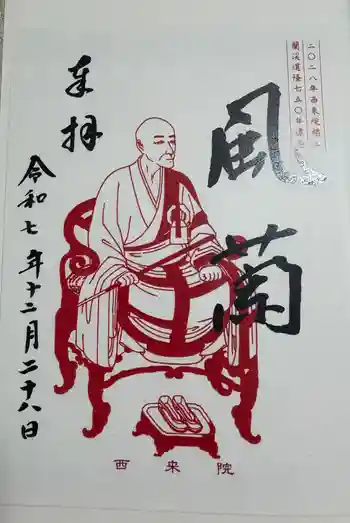 二〇二八年西来院
蘭渓道隆七五〇年遠忌
風蘭
奉拝
令和七年十二月二十八日
西来院